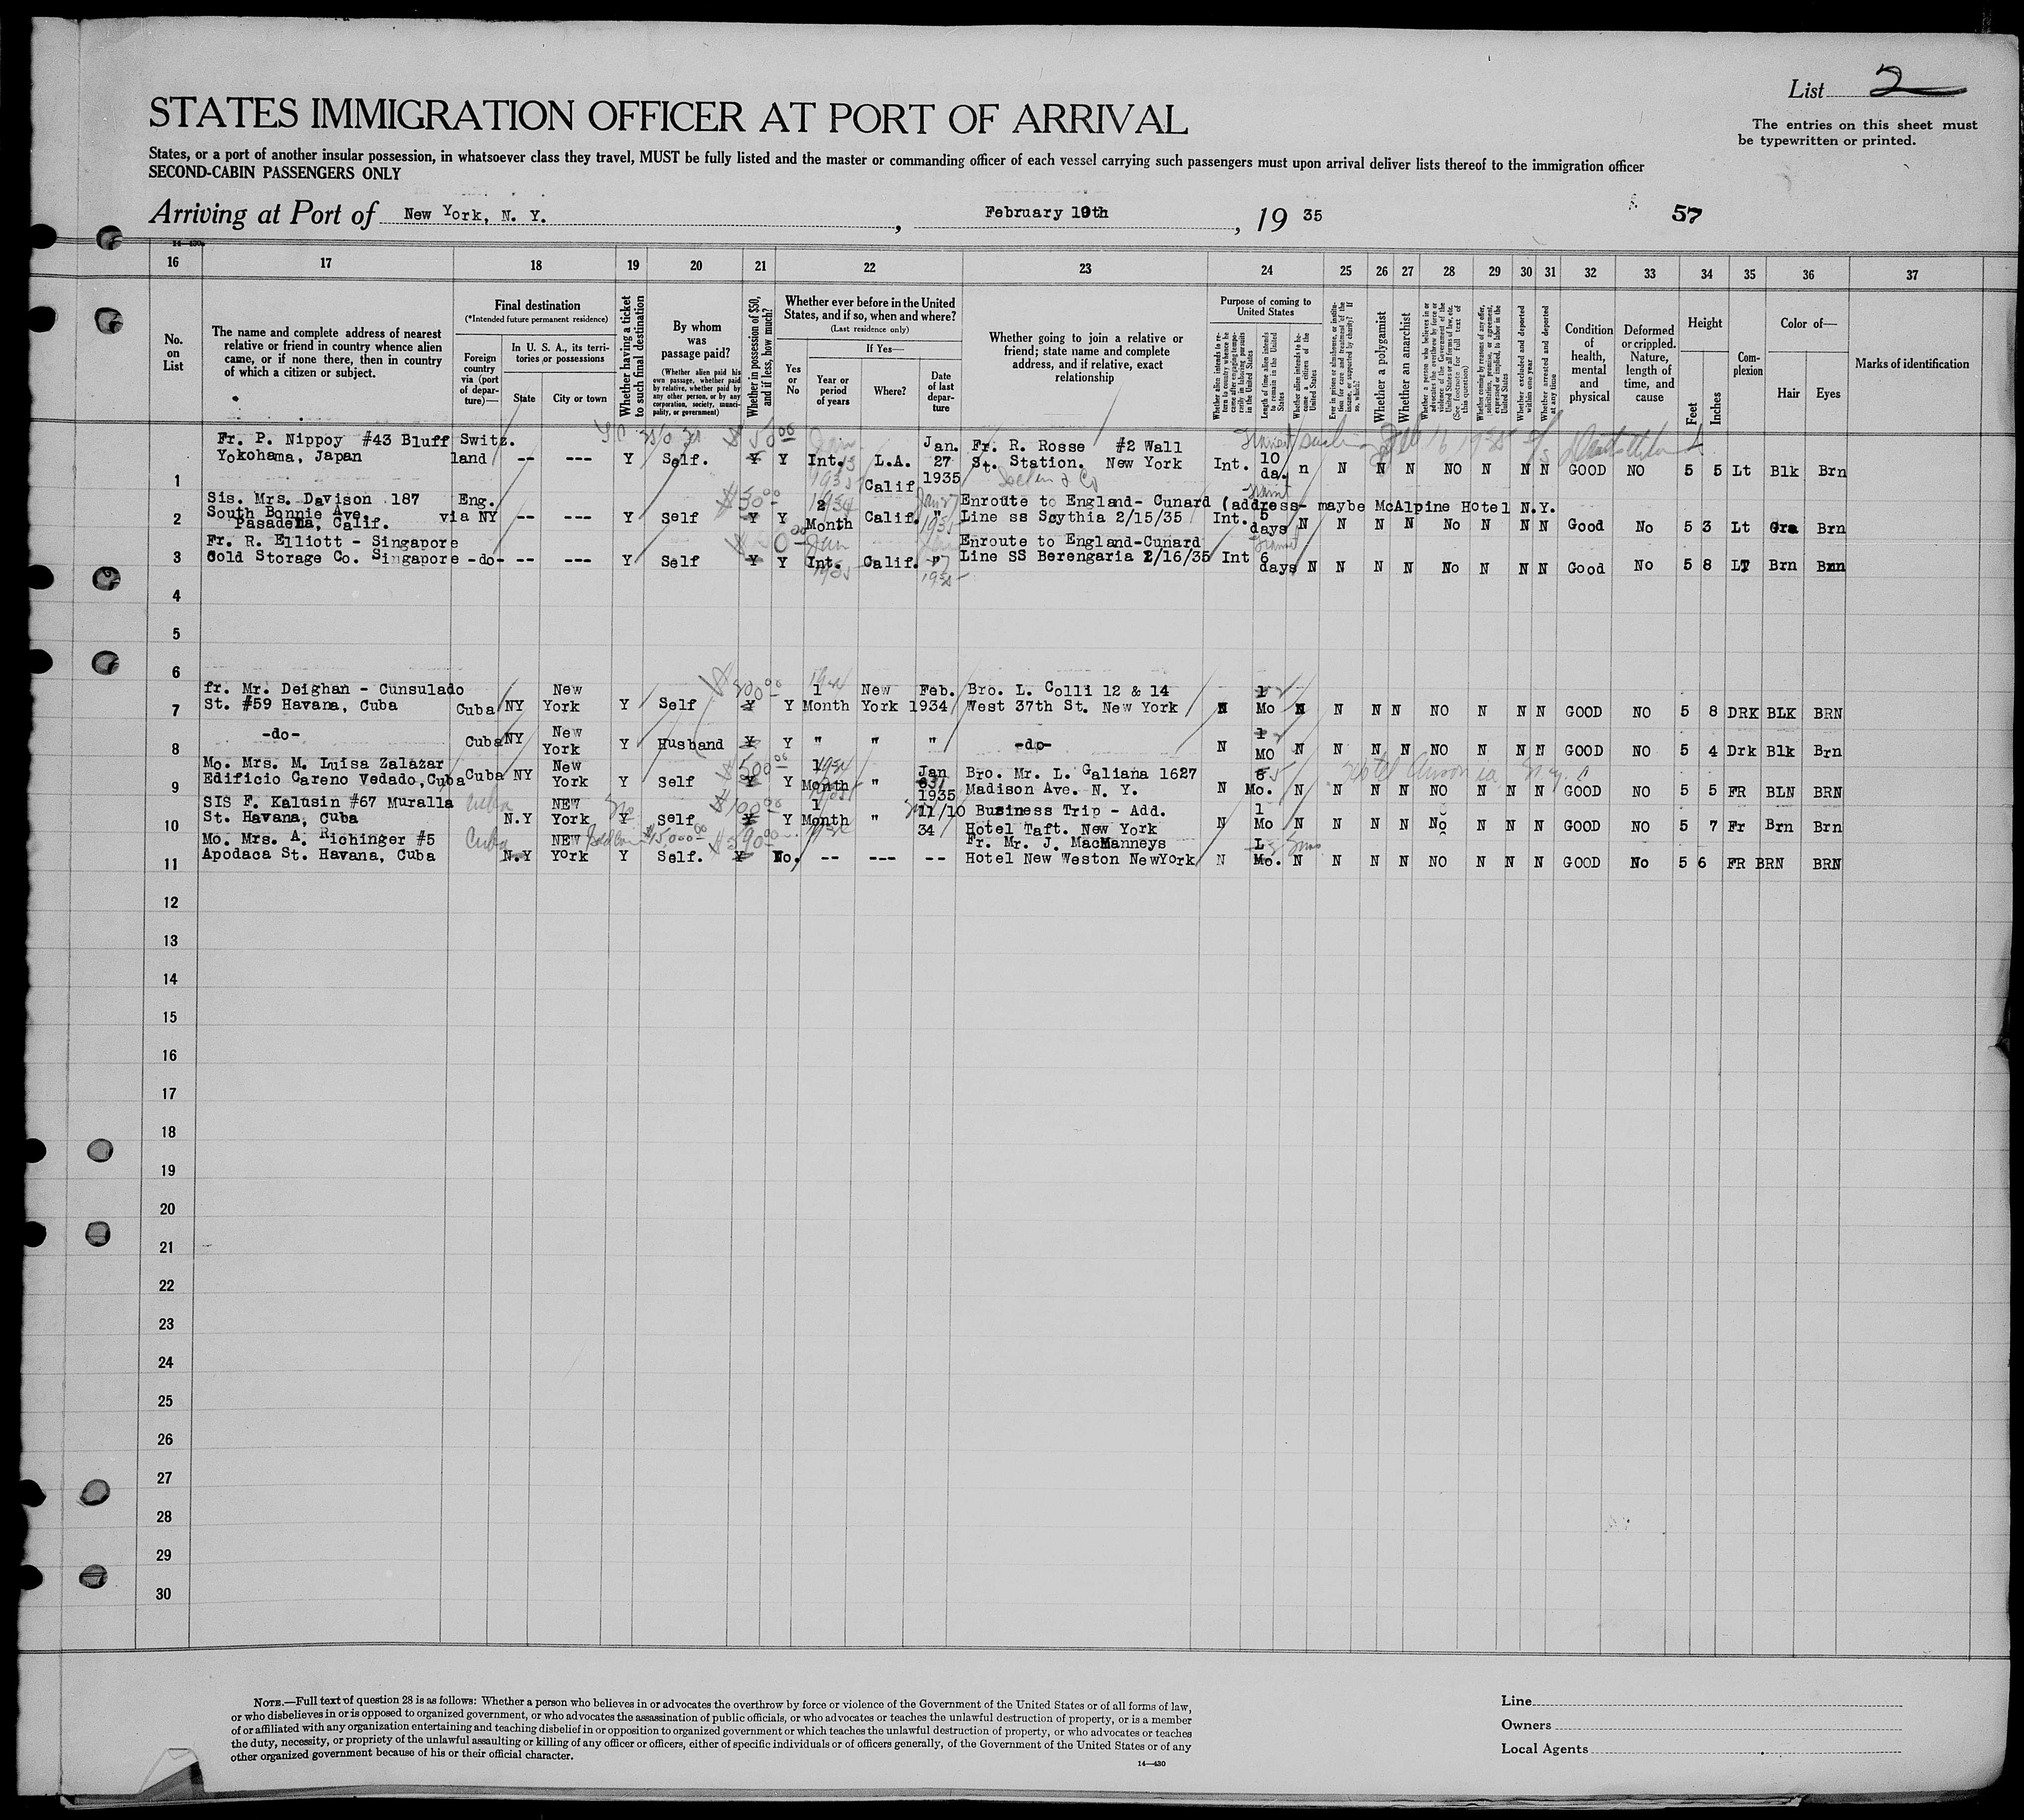 List 2
The entries on this sheet must
be typewritten or printed.
STATES IMMIGRATION OFFICER AT PORT OF ARRIVAL
States, or a port of another insular possession, in whatsoever class they travel, MUST be fully listed and the master or commanding officer of each vessel carrying such passengers must upon arrival deliver lists thereof to the immigration officer
SECOND-CABIN PASSENGERS ONLY
Arriving at Port of New York, N. Y., February 19th, 19 35
57
14-430
16 17 18 19 20 21 22 23 24 25 26 27 28 29 30 31 32 33 34 35 36 37
No.
on
List
The name and complete address of nearest
relative or friend in country whence alien
came, or if none there, then in country
of which a citizen or subject.
Final destination
(*Intended future permanent residence)
Foreign
country
via (port
of depar-
ture)—
In U. S. A., its terri-
tories or possessions
State City or town
Whether having a ticket
to such final destination
By whom
was
passage paid?
(Whether alien paid his
own passage, whether paid
by relative, whether paid by
any other person, or by any
corporation, society, munici-
pality, or government)
Whether in possession of $50,
and if less, how much?
Whether ever before in the United
States, and if so, when and where?
(Last residence only)
Yes
or
No
If Yes—
Year or
period
of years
Where?
Date
of last
depar-
ture
Whether going to join a relative or
friend; state name and complete
address, and if relative, exact
relationship
Purpose of coming to
United States
Length of time alien intends
to remain in the United
States
Whether alien intends to be-
come a citizen of the
United States
Whether a polygamist
Whether an anarchist
Whether excluded and deported
within one year
Whether arrested and deported
at any time
Condition
of
health,
mental
and
physical
Deformed
or crippled.
Nature,
length of
time, and
cause
Height
Feet Inches
Com-
plexion
Color of—
Hair Eyes
Marks of identification
Fr. P. Nippoy #43 Bluff Switz. Jan. Fr. R. Rosse #2 Wall
1 Yokohama, Japan land -- --- Y Self. Y Y Int. L.A. Calif 27 1935 St. Station. New York Int. 10 da. n N N N NO N N N GOOD NO 5 5 Lt Blk Brn
Sis. Mrs. Davison 187 Eng. 2 Enroute to England- Cunard (address- maybe McAlpine Hotel N.Y.
2 South Bonnie Ave. via NY -- --- Y Self Y Y Month Calif. " Line ss Scythia 2/15/35 Int. 5 days N N N N No N N N Good No 5 3 Lt Gra Brn
Pasadena, Calif.
Fr. R. Elliott - Singapore Enroute to England-Cunard
3 Cold Storage Co. Singapore -do- -- --- Y Self Y Y Int. Calif. " Line SS Berengaria 2/16/35 Int 6 days N N N N No N N N Good No 5 8 LT Brn Brn
4
5
6
fr. Mr. Deighan - Cunsulado New 1 New Feb. Bro. L. Colli 12 & 14
7 St. #59 Havana, Cuba Cuba NY York Y Self Y Y Month York 1934 West 37th St. New York N 1 Mo N N N N NO N N N GOOD NO 5 8 DRK BLK BRN
8 -do- Cuba NY New York Y Husband Y Y " " " -do- N 1 MO N N N N NO N N N GOOD NO 5 4 Drk Blk Brn
Mo. Mrs. M. Luisa Zalazar New 1 Jan Bro. Mr. L. Galiana 1627 Hotel Ansonia N.Y.
9 Edificio Careno Vedado, Cuba Cuba NY York Y Self Y Y Month " 1935 Madison Ave. N. Y. N 6 Mo. N N N N NO N N N GOOD NO 5 5 FR BLN BRN
SIS F. Kalusin #67 Muralla Cuba NEW $100.00 1 11/10 Business Trip - Add.
10 St. Havana, Cuba N.Y York Y Self Y Y Month " 34 Hotel Taft. New York N 1 Mo N N N N No N N N GOOD NO 5 7 Fr Brn Brn
Mo. Mrs. A. Richinger #5 Cuba NEW Fr. Mr. J. MacManneys
11 Apodaca St. Havana, Cuba N.Y York Y Self. Y No, -- --- -- Hotel New Weston NewYork N Mo. N N N N NO N N N GOOD No 5 6 FR BRN BRN
12
13
14
15
16
17
18
19
20
21
22
23
24
25
26
27
28
29
30
NOTE.—Full text of question 28 is as follows: Whether a person who believes in or advocates the overthrow by force or violence of the Government of the United States or of all forms of law,
or who disbelieves in or is opposed to organized government, or who advocates the assassination of public officials, or who advocates or teaches the unlawful destruction of property, or is a member
of or affiliated with any organization entertaining and teaching disbelief in or opposition to organized government or which teaches the unlawful destruction of property, or who advocates or teaches
the duty, necessity, or propriety of the unlawful assaulting or killing of any officer or officers, either of specific individuals or of officers generally, of the Government of the United States or of any
other organized government because of his or their official character.
14—430
Line
Owners
Local Agents